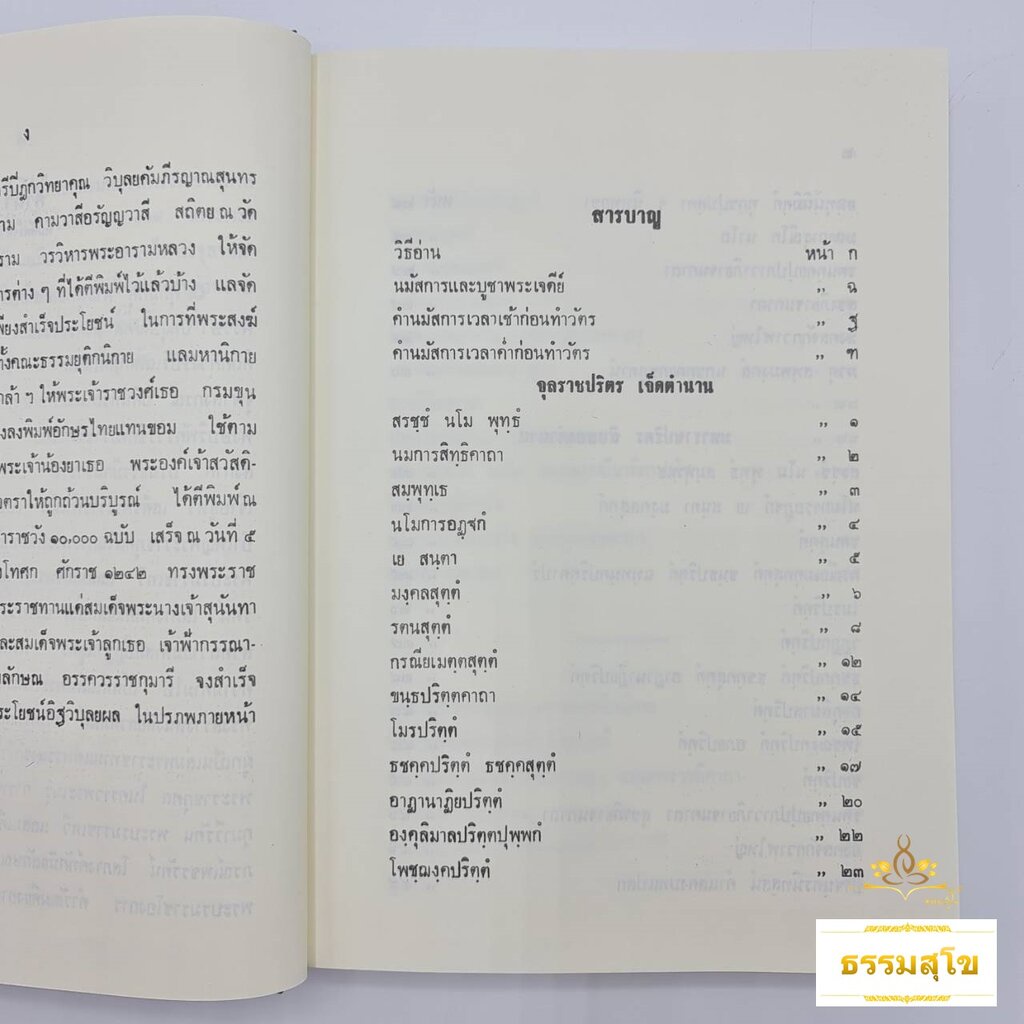 ง
รีปิฎกวิทยาคุณ วิบุลยคัมภีรญาณสุนทร
าม คามวาสีอรัญญวาสี สถิตย ณ วัด
ราม วรวิหารพระอารามหลวง ให้จัด
ารต่าง ๆ ที่ได้ตีพิมพ์ไว้แล้วบ้าง แลจัด
พียงสำเร็จประโยชน์ ในการที่พระสงฆ์
ทั้งคณะธรรมยุติกนิกาย แลมหานิกาย
กล้า ฯ ให้พระเจ้าราชวงศ์เธอ กรมขุน
งลงพิมพ์อักษรไทยแทนขอม ใช้ตาม
พระเจ้าน้องยาเธอ พระองค์เจ้าสวัสดิ-
วตราให้ถูกถ้วนบริบูรณ์ ได้ตีพิมพ์ ณ
าราชวัง ๑๐,๐๐๐ ฉบับ เสร็จ ณ วันที่ ๕
โทศก ศักราช ๑๒๔๒ ทรงพระราช
ระราชทานแด่สมเด็จพระนางเจ้าสุนันทา
ละสมเด็จพระเจ้าลูกเธอ เจ้าฟ้ากรรณา-
ลักษณ อรรควรราชกุมารี จงสำเร็จ
ระโยชน์อิฐวิบุลยผล ในปรภพภายหน้า
สารบาญ
วิธีอ่าน หน้า ก
นมัสการและบูชาพระเจดีย์ ,, ฉ
คำนมัสการเวลาเช้าก่อนทำวัตร ,, ฐ
คำนมัสการเวลาค่ำก่อนทำวัตร ,, ฑ
จุลราชปริตร เจ็ดตำนาน
สรชฺชํ นโม พุทฺธํ ,, ๑
นมการสิทฺธิคาถา ,, ๒
สมฺพุทฺเธ ,, ๓
นโมการอฏฺฐกํ ,, ๔
เย สนฺตา ,, ๕
มงฺคลสุตฺตํ ,, ๖
รตนสุตฺตํ ,, ๘
กรณียเมตฺตสุตฺตํ ,, ๑๒
ขนฺธปริตฺตคาถา ,, ๑๔
โมรปริตฺตํ ,, ๑๕
ธชคฺคปริตฺตํ ธชคฺคสุตฺตํ ,, ๑๗
อาฏานาฏิยปริตฺตํ ,, ๒๐
องฺคุลิมาลปริตฺตปุพฺพกํ ,, ๒๒
โพชฺฌงฺคปริตฺตํ ,, ๒๓
ธรรมสุโข